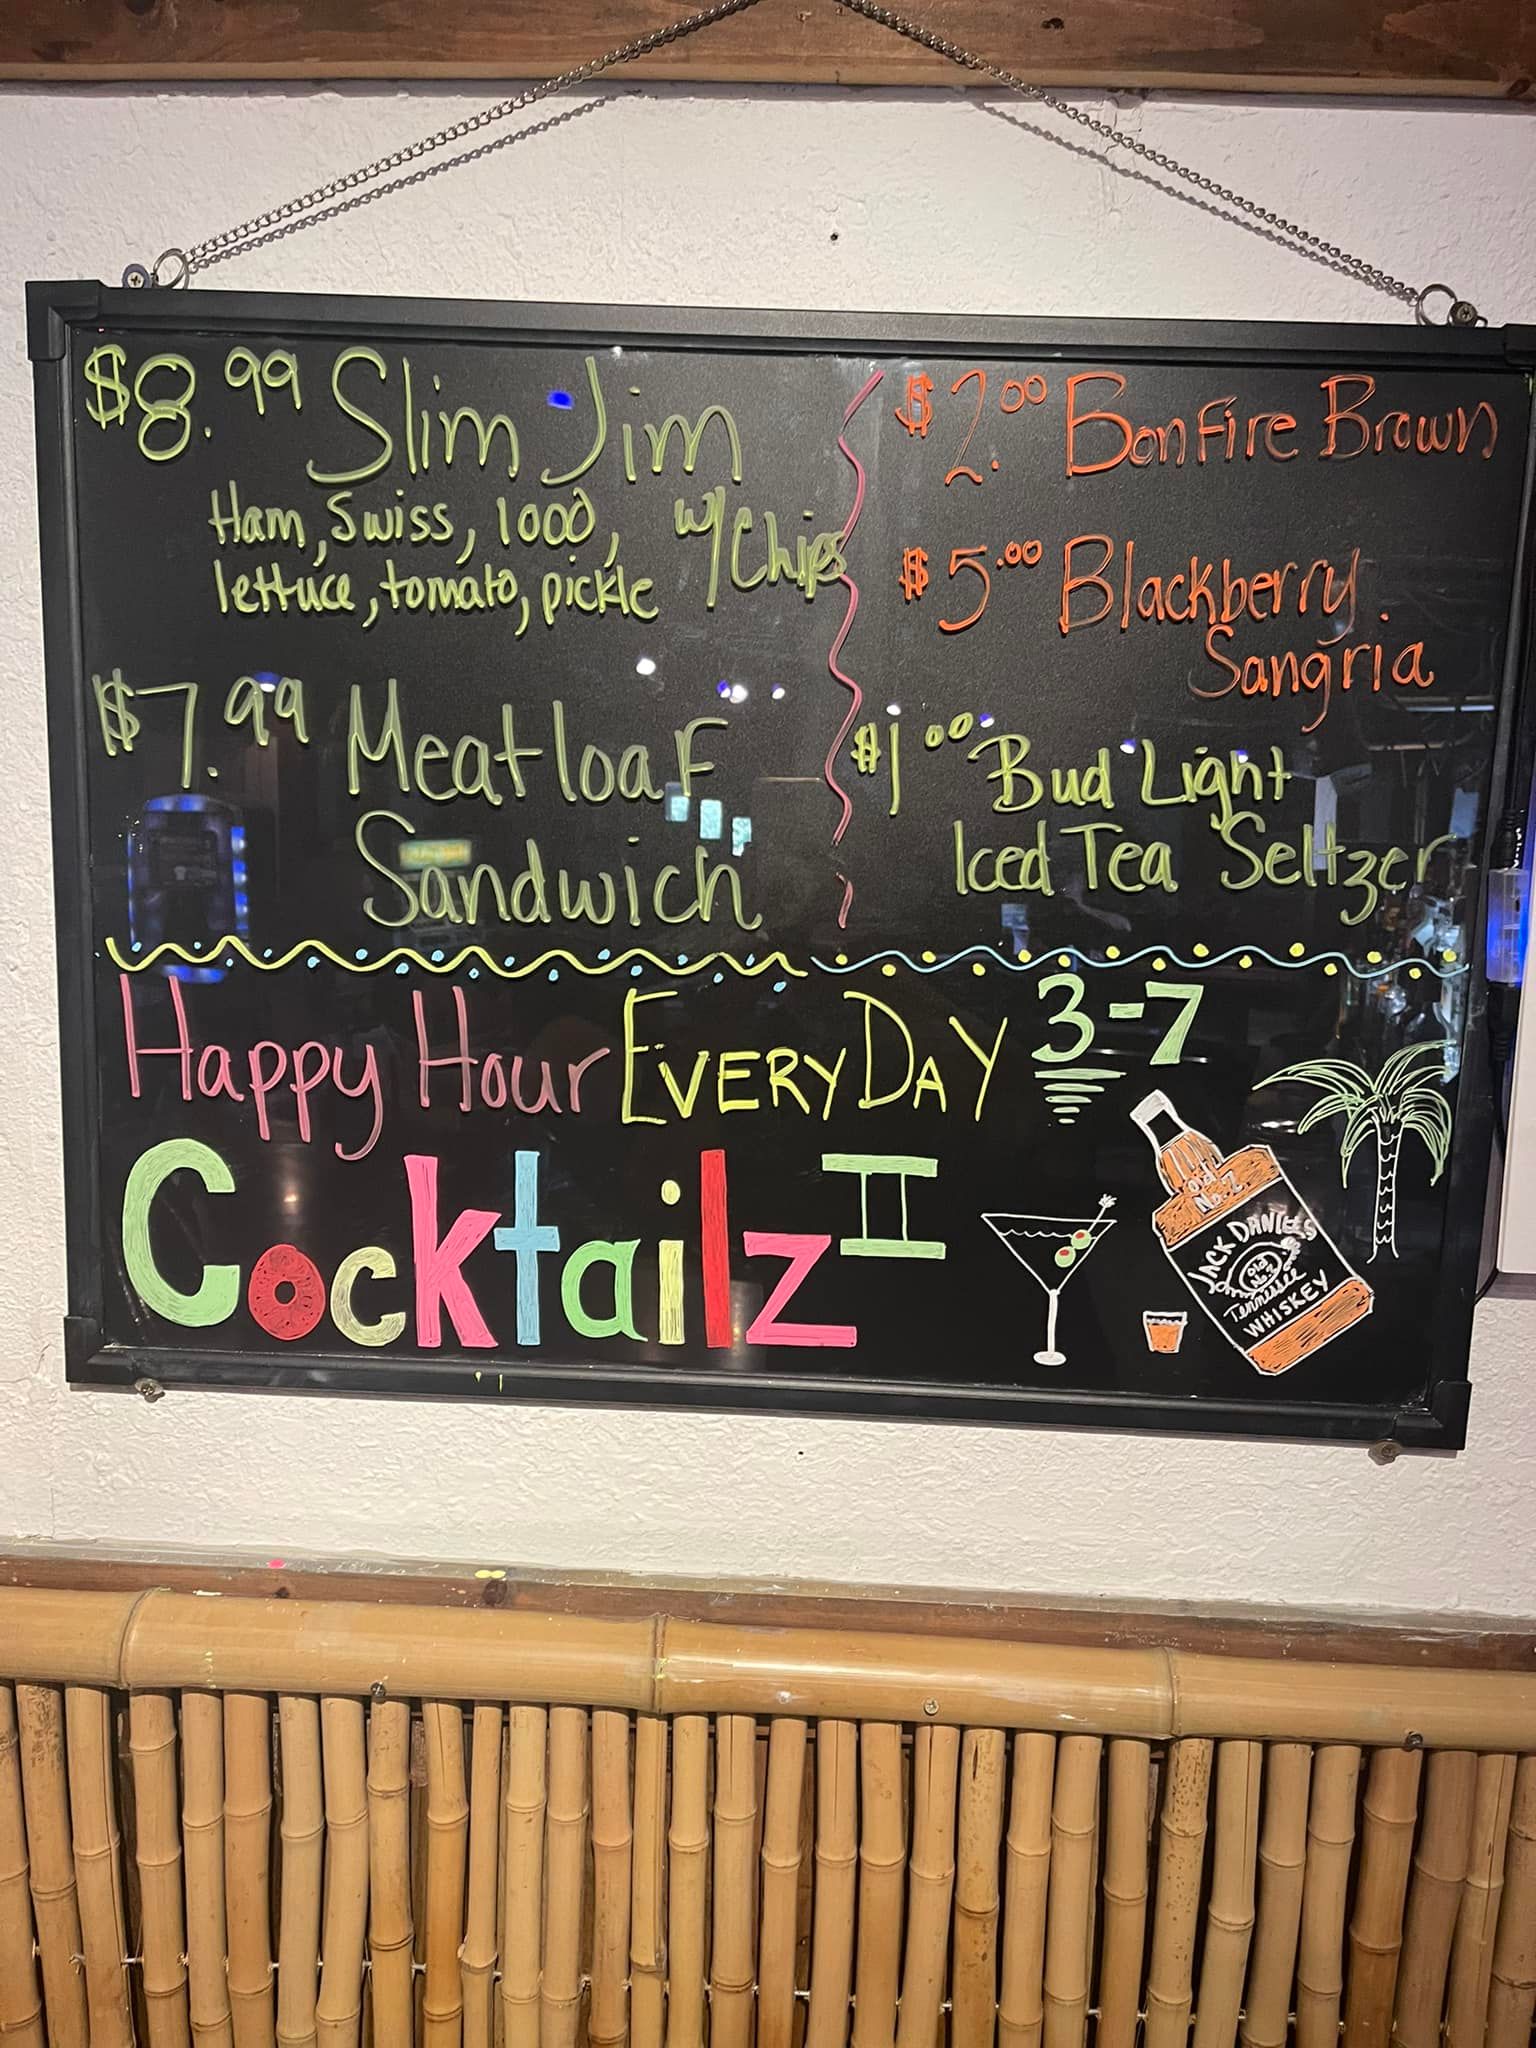 $8.99 Slim Jim
Ham, Swiss, 1000,
lettuce, tomato, pickle
w/ Chips
$7.99 Meatloaf
Sandwich
$2.00 Bonfire Brown
$5.00 Blackberry
Sangria
$1.00 Bud Light
Iced Tea Seltzer
Happy Hour EVERYDAY 3-7
Cocktailz II
Old
No. 7
JACK DANIEL'S
Old
No. 7
Tennessee
WHISKEY